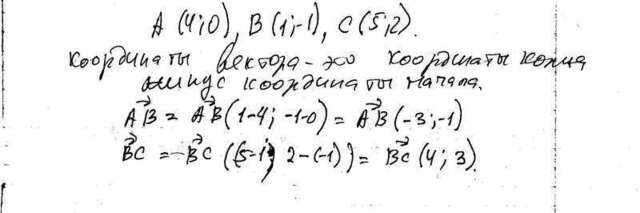 A (4;0), B (1;-1), C (5;2).
Координаты вектора - это координаты конца
минус координаты начала.
AB = AB (1-4; -1-0) = AB (-3;-1)
BC = BC ((5-1; 2-(-1)) = BC (4; 3).